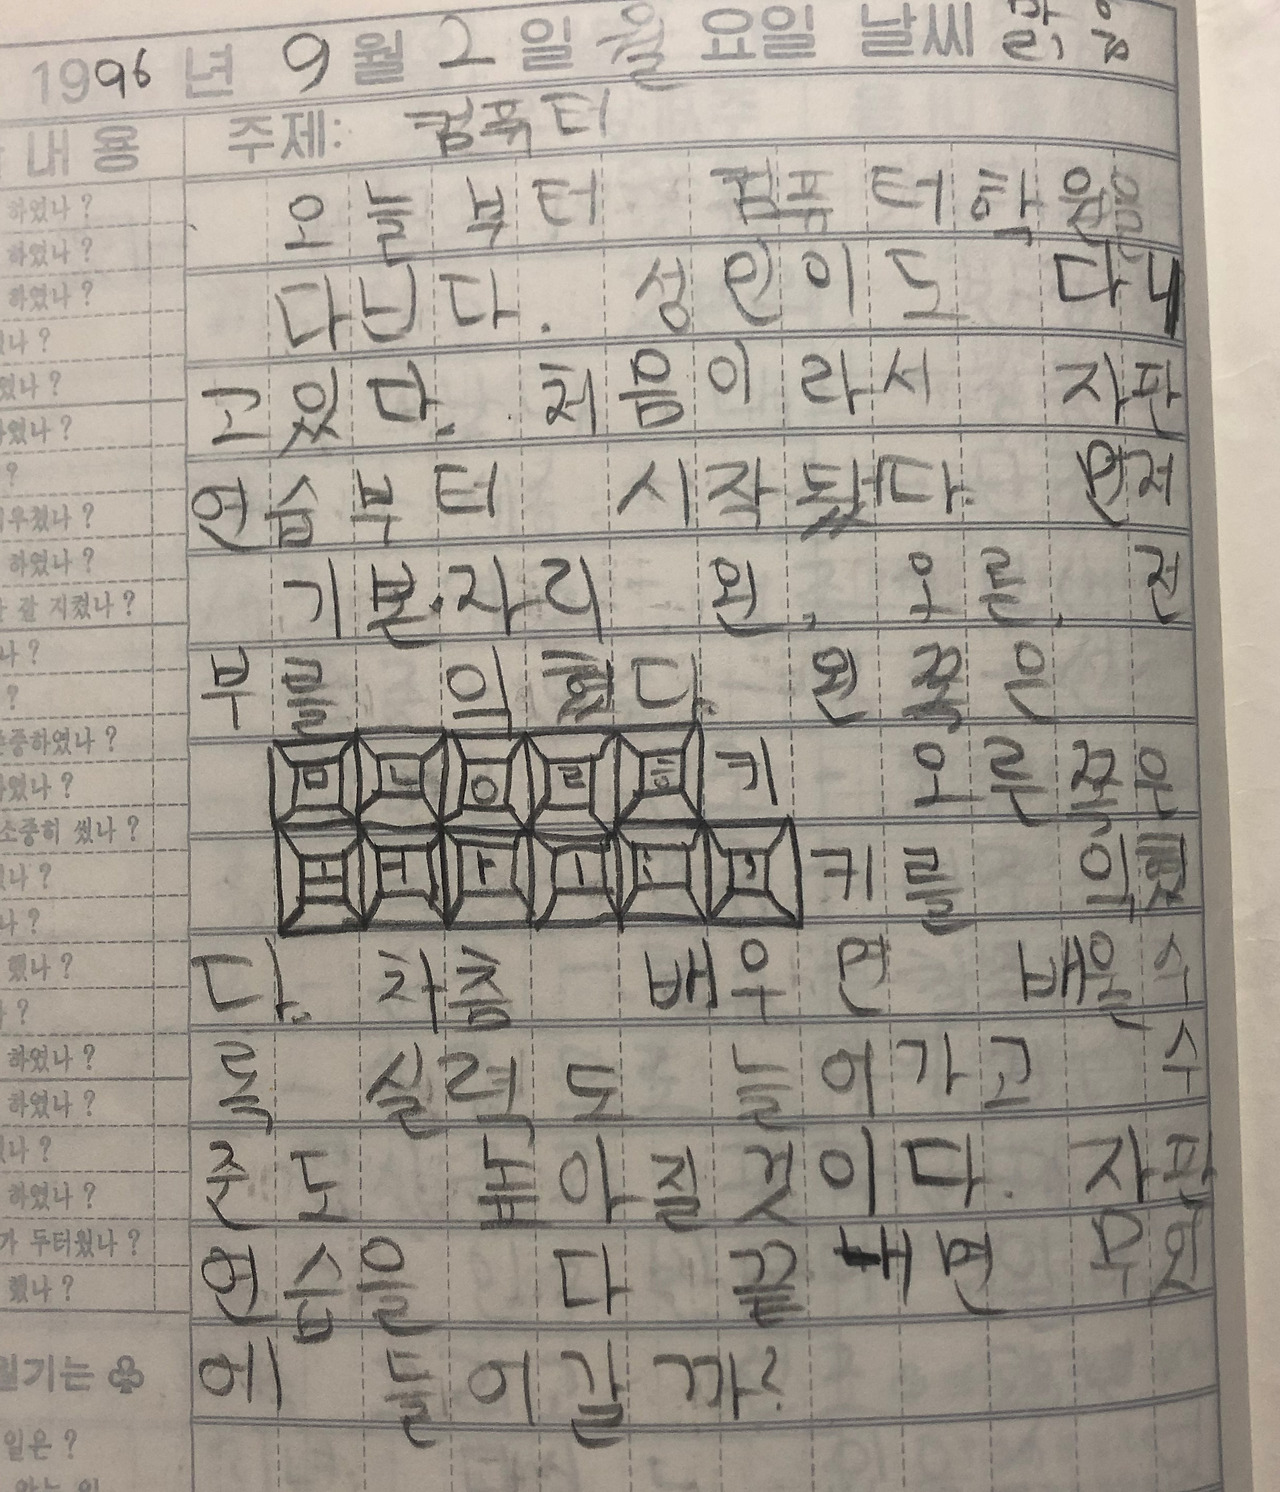 1996년 9월 2일 월요일 날씨 맑음
내용
주제: 컴퓨터
하였나?
오늘부터 컴퓨터학원을
하였나?
다닌다. 성인이도 다니
하였나?
고있다. 처음이라서 자판
연습부터 시작됐다. 먼저
하였나?
기본자리 왼, 오른, 전
잘 지켰나?
부를 익혔다. 왼쪽은
ㅁ ㄴ ㅇ ㄹ ㅎ 키 오른쪽은
소중히 썼나?
ㅗ ㅓ ㅏ ㅣ ; ' 키를 익혔
다. 차츰 배우면 배울수
했나?
록 실력도 늘어가고 수
하였나?
하였나?
준도 높아질것이다. 자판
하였나?
연습을 다 끝내면 무엇
가 두터웠나?
했나?
에 들어갈까?
일기는 ♣
일은?